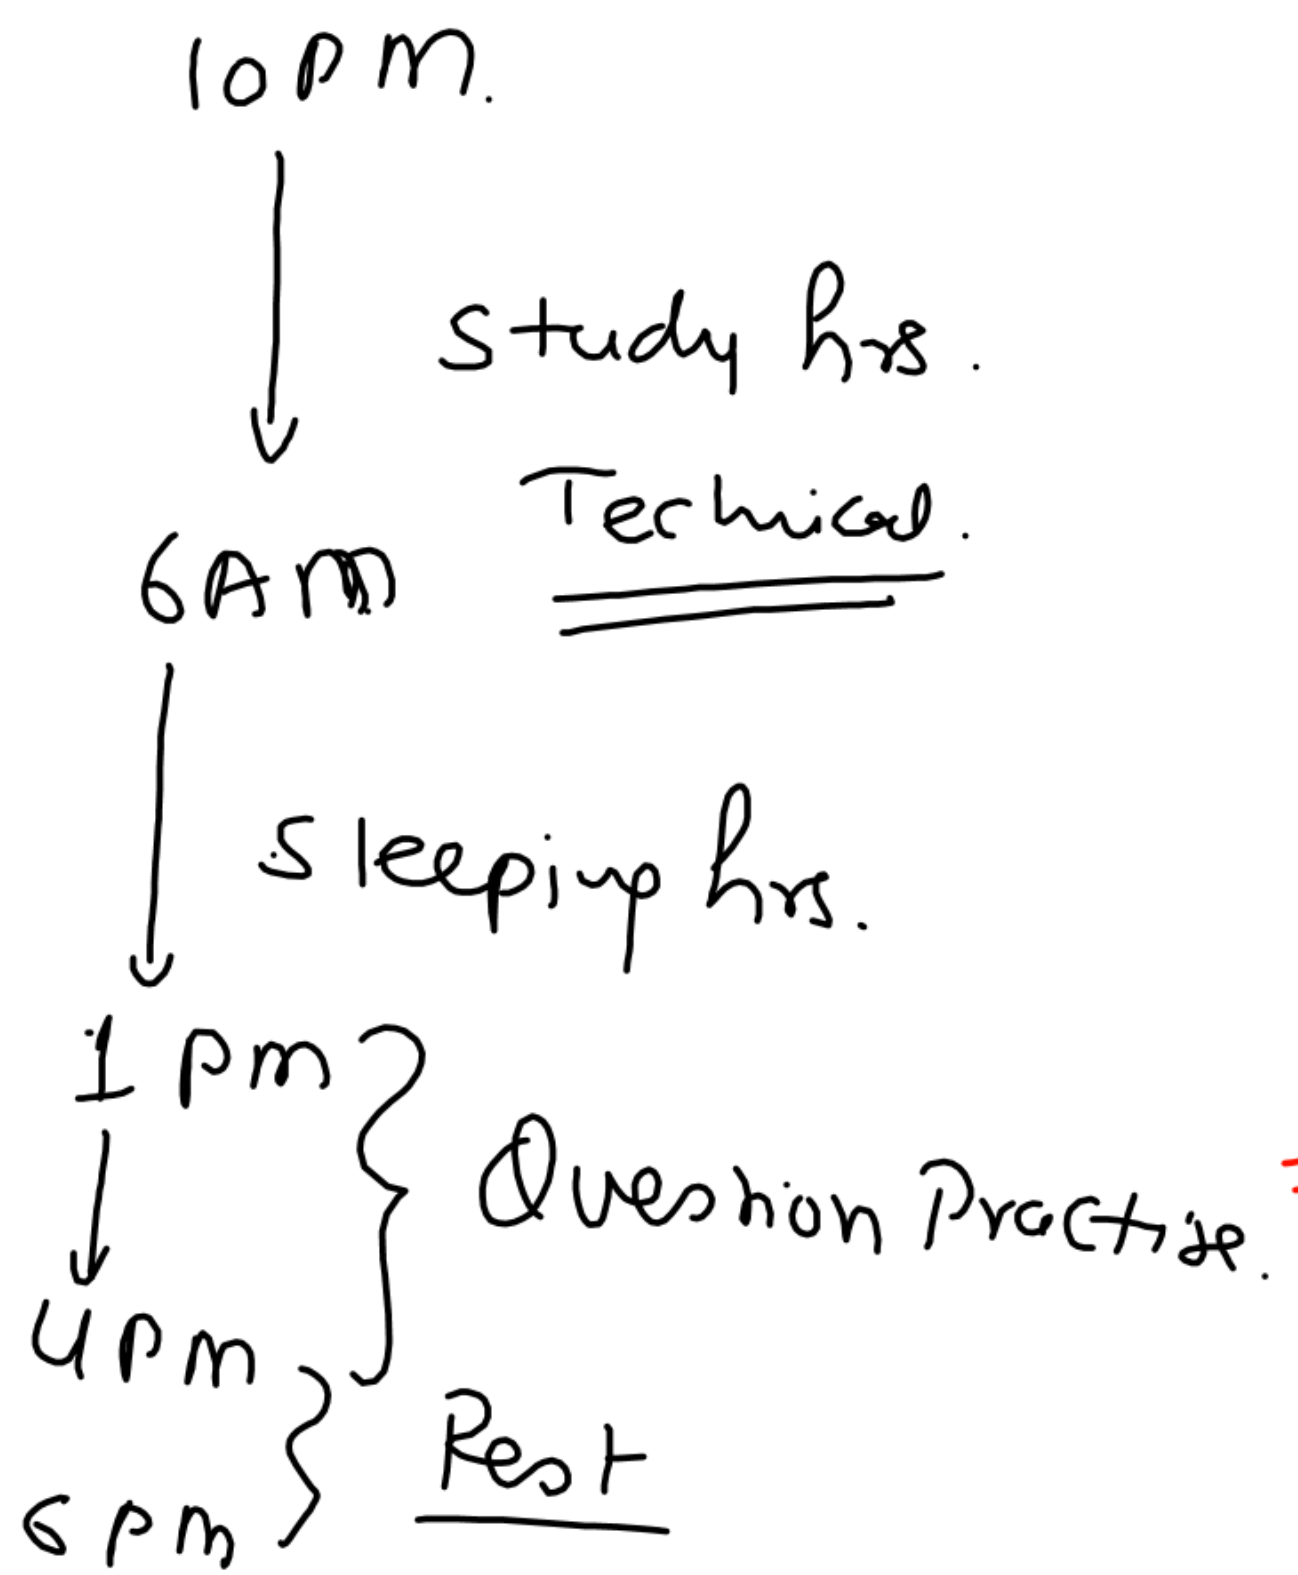 10 PM.
Study hrs.
Technical.
6 AM
Sleeping hrs.
1 pm
Question Practise.
4 pm
Rest
6 pm